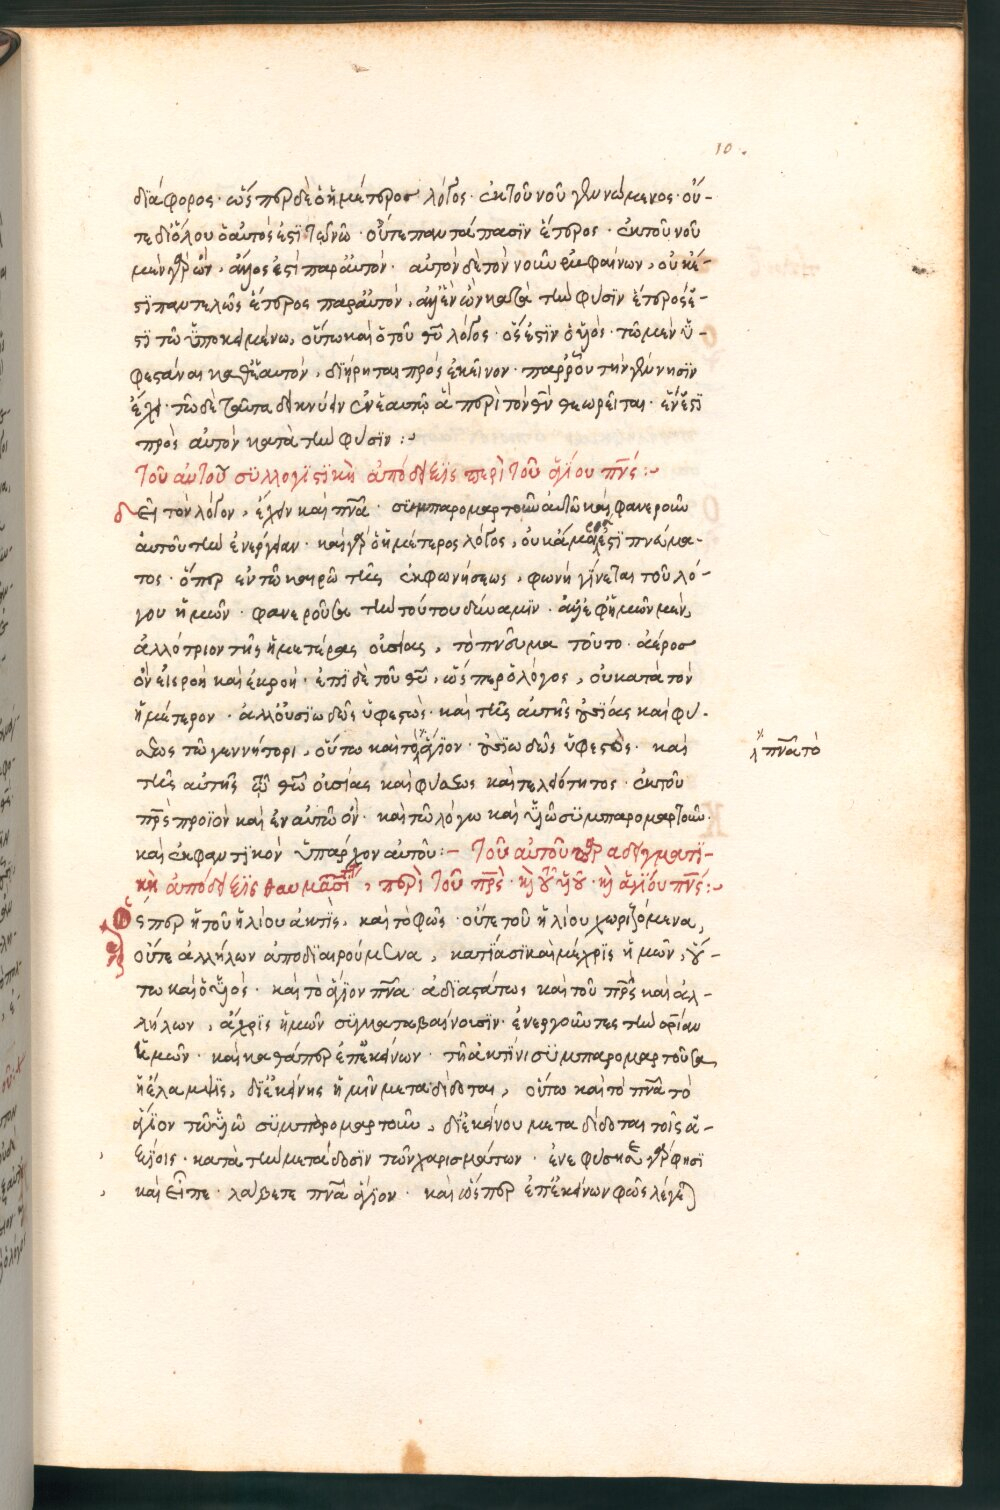 10
διάφορος· ὥσπερ δὲ ὁ ἡμέτερος λόγος· ἐκ τοῦ νοῦ γεννώμενος· οὔ-
τε διόλου ὁ αὐτός ἐστι τῷ νῷ· οὔτε παντάπασιν ἕτερος· ἐκ τοῦ νοῦ
μὲν γὰρ ὢν, ἄλλος ἐστὶ παρ' αὐτόν· αὐτὸν δὲ τὸν νοῦν ἐμφαίνων, οὐκέ-
τι παντελῶς ἕτερος παρ' αὐτόν, ἀλλ' ἓν ὢν κατὰ τὴν φύσιν ἕτερός ἐ-
στι τῷ ὑποκειμένῳ, οὕτω καὶ ὁ τοῦ θῦ λόγος· ὅς ἐστιν ὁ υἱός· τῷ μὲν ὑ-
φεστάναι καθ' ἑαυτόν, διήρηται πρὸς ἐκεῖνον· παρ' οὗ τὴν γέννησιν
ἔχει· τῷ δὲ ταῦτα δεικνύειν ἐν ἑαυτῷ ἃ περὶ τὸν θν θεωρεῖται· ἕν ἐστι
πρὸς αὐτὸν κατὰ τὴν φύσιν :~
Τοῦ αὐτοῦ συλλογιστικὴ ἀπόδειξις περὶ τοῦ ἁγίου πνς :~
δ Εἰ τὸν λόγον, ἔχειν καὶ πνα· συμπαρομαρτοῦν αὐτῷ καὶ φανεροῦν
αὐτοῦ τὴν ἐνέργειαν· καὶ γὰρ ὁ ἡμέτερος λόγος, οὐκ ἄμοιρός ἐστι πνεύμα-
τος· ὅπερ ἐν τῷ καιρῷ τῆς ἐκφωνήσεως, φωνὴ γίνεται τοῦ λό-
γου ἡμῶν· φανεροῦσα τὴν τούτου δύναμιν· ἀλλ' ἐφ' ἡμῶν μὲν,
ἀλλότριον τῆς ἡμετέρας οὐσίας, τὸ πνεῦμα τοῦτο· ἀέρος
ὂν εἰσροὴ καὶ ἐκροή· ἐπὶ δὲ τοῦ θῦ, ὥσπερ ὁ λόγος, οὐ κατὰ τὸν
ἡμέτερον· ἀλλ' οὐσιωδῶς ὑφεστώς· καὶ τῆς αὐτῆς οὐσίας καὶ φύ-
σεως τῷ γεννήτορι, οὕτω καὶ τὸ ἅγιον· οὐσιωδῶς ὑφεστὸς· καὶ
πνα τὸ
τῆς αὐτῆς τῷ θῷ οὐσίας καὶ φύσεως καὶ τελειότητος· ἐκ τοῦ
πρς προϊὸν καὶ ἐν αὐτῷ ὄν· καὶ τῷ λόγῳ καὶ υἱῷ συμπαρομαρτοῦν·
καὶ ἐκφαντικὸν ὑπάρχον αὐτοῦ :– Τοῦ αὐτοῦ παραδειγματι-
κὴ ἀπόδειξις θαυμαστὴ, περὶ τοῦ πρς· κὶ υἱοῦ· κὶ ἁγίου πνς :~
Ὥσπερ ἡ τοῦ ἡλίου ἀκτὶς, καὶ τὸ φῶς· οὔτε τοῦ ἡλίου χωριζόμενα,
οὔτε ἀλλήλων ἀποδιαιρούμενα, κατίασι καὶ μέχρις ἡμῶν, οὕ-
τω καὶ ὁ υἱός· καὶ τὸ ἅγιον πνα ἀδιαστάτως καὶ τοῦ πρς καὶ ἀλ-
λήλων, ἄχρις ἡμῶν συγκαταβαίνουσιν· ἐνεργοῦντες τὴν σρίαν
ἡμῶν· καὶ καθάπερ ἐπ' ἐκείνων· τῇ ἀκτῖνι συμπαρομαρτοῦσα,
ἡ ἔλαμψις, δι' ἐκείνης ἡμῖν μεταδίδοται, οὕτω καὶ τὸ πνα τὸ
ἅγιον τῷ υἱῷ συμπαρομαρτοῦν, δι' ἐκείνου μεταδίδοται τοῖς ἀ-
ξίοις· κατὰ τὴν μετάδοσιν τῶν χαρισμάτων· ἐνεφύσησε γάρ φησι
καὶ εἶπε· λάβετε πνα ἅγιον· καὶ ὥσπερ ἐπ' ἐκείνων φῶς λέγε